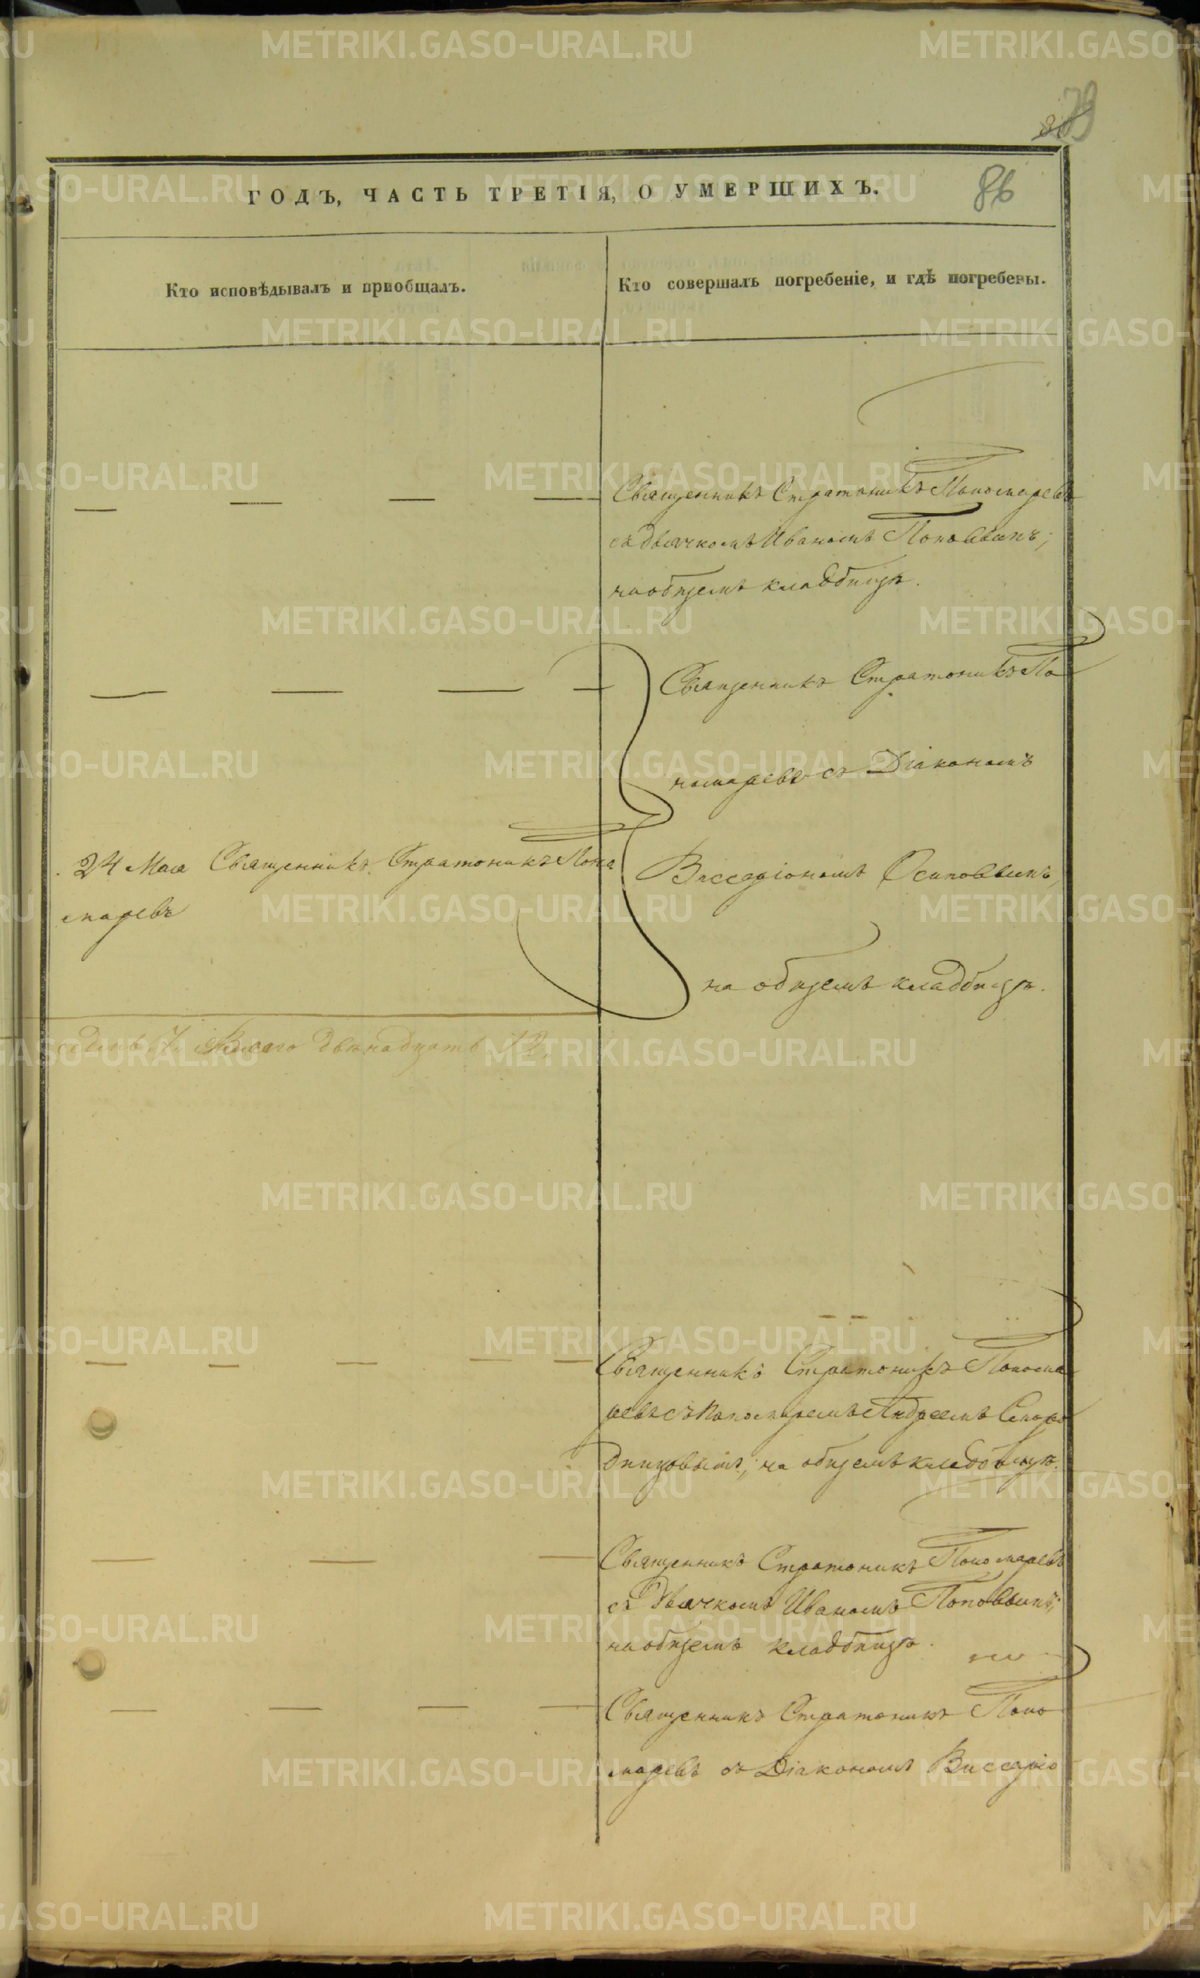 79
ГОДЪ, ЧАСТЬ ТРЕТІЯ, О УМЕРШИХЪ.
86
Кто исповѣдывалъ и пріобщалъ.
Кто совершалъ погребеніе, и гдѣ погребены.
Священникъ Стратоникъ Пономаревъ
съ дьячкомъ Иваномъ Поповымъ;
на общемъ кладбищѣ.
Священникъ Стратоникъ По
номаревъ съ Діакономъ
Виссаріономъ Осиповымъ,
на общемъ кладбищѣ.
24 Мая Священникъ Стратоникъ Поно
маревъ
седмь 7. Всего двѣнадцать 12.
Священникъ Стратоникъ Понома
ревъ съ Пономаремъ Андреемъ
на общемъ кладбищѣ.
Священникъ Стратоникъ Пономаревъ
съ Дьячкомъ Иваномъ Поповымъ;
на общемъ кладбищѣ.
Священникъ Стратоникъ Поно
маревъ съ Діакономъ Виссаріо
METRIKI.GASO-URAL.RU